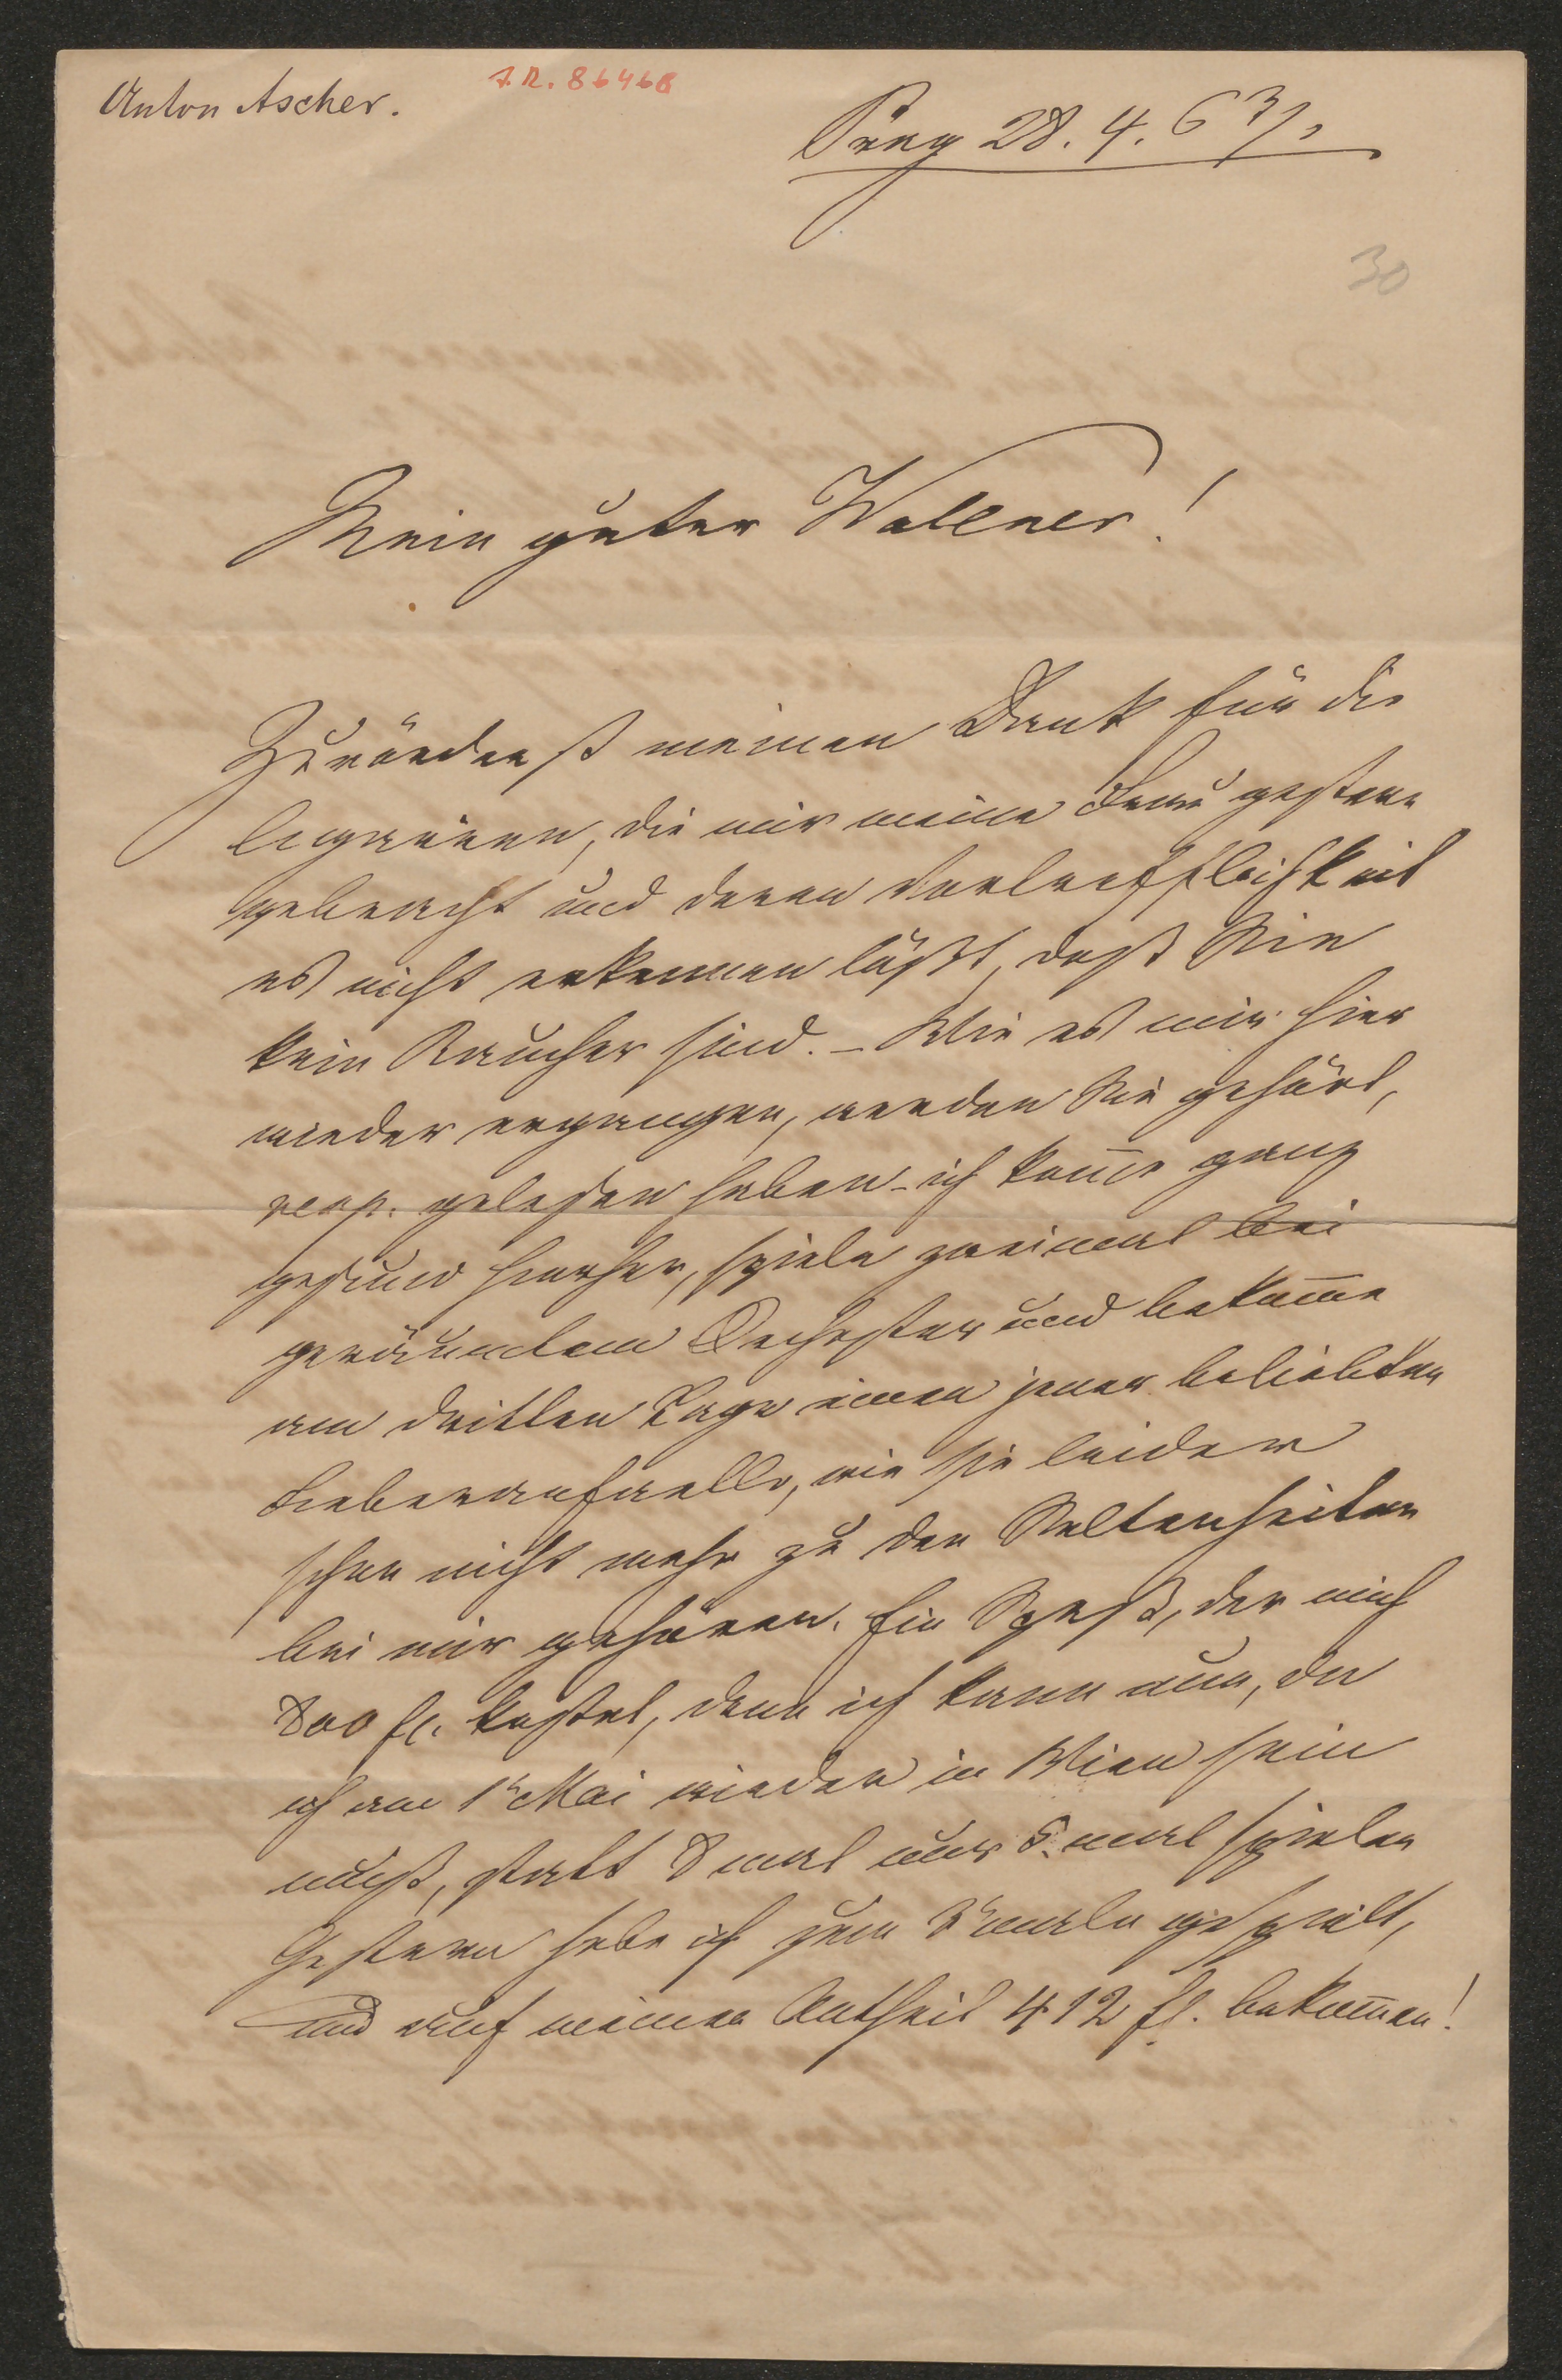 Anton Ascher.
I.N. 86468
Prag 28. 4. 63/.
30
Mein guter Wallner!
Zuvörderst meinen Dank für die
Cigarren, die mir meine Frau gestern
gebracht und deren Vortrefflichkeit
es nicht erkennen läßt, daß Sie
kein Raucher sind. – Wie es mir hier
wieder ergangen, werden Sie gehört,
resp. gelesen haben – ich kom̄e ganz
gesund hierher, spiele zweimal bei
geräumtem Orchester und bekom̄e
am dritten Tage einen jener beliebten
Fieberanfaelle, wie sie leider
schon nicht mehr zu den Seltenheiten
bei mir gehören. Ein Spaß, der mich
800 fl. kostet, denn ich kann nun, da
ich am 1t Mai wieder in Wien sein
muß, statt 8 mal nur 5 mal spielen
Gestern habe ich zum 3t male gespielt,
und auf meinen Antheil 412 fl. bekom̄en!